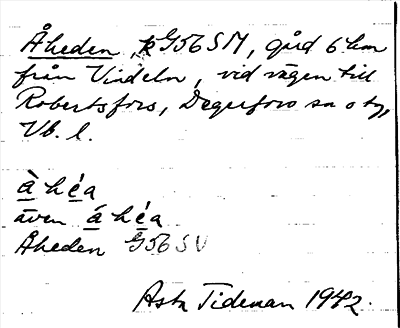 Åheden, G56SM, gård 6 km
från Vindeln, vid vägen till
Robertsfors, Degerfors sn o tg,
Vb. l.
à héa
även á héa
Åheden G56 SV
Asta Tideman 1942.